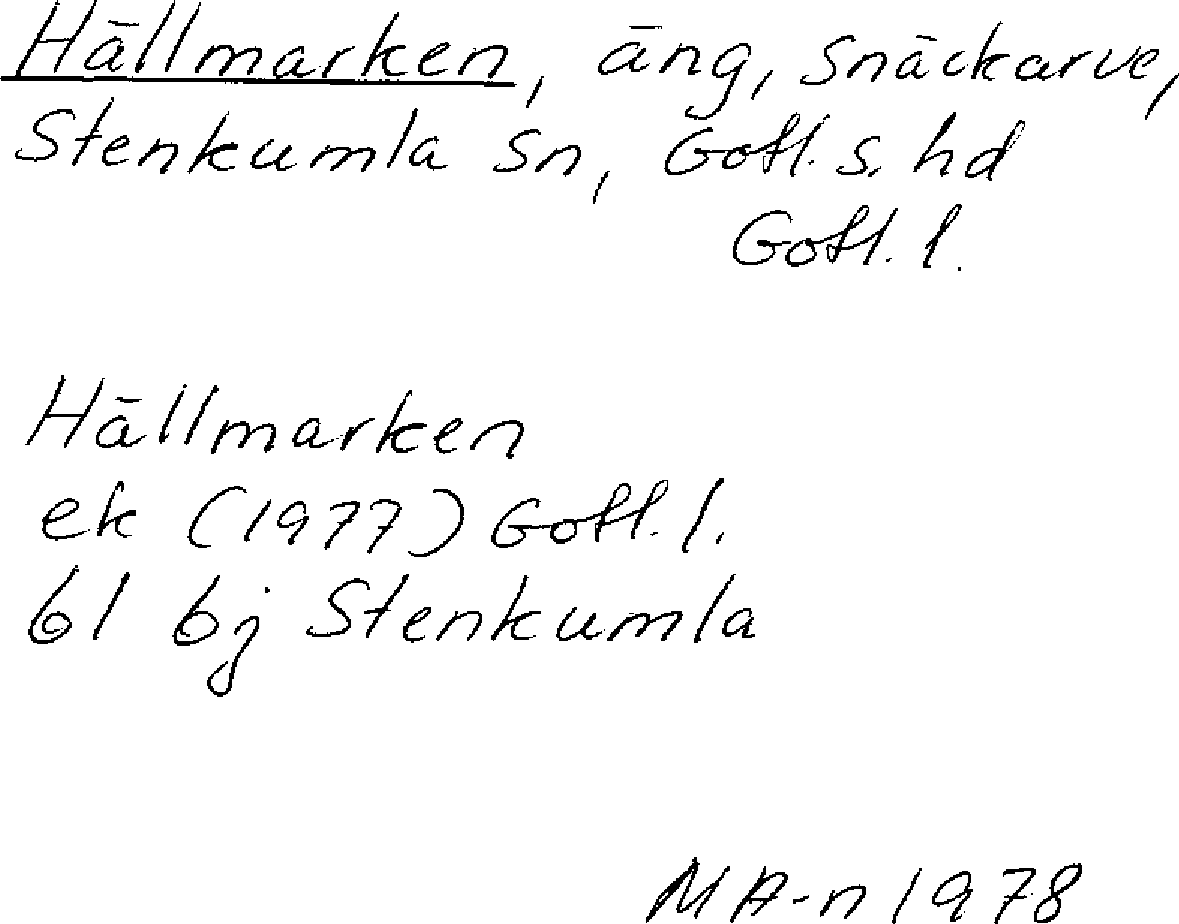 Hällmarken, äng, Snäckarve,
Stenkumla sn, Gotl. s. hd
Gotl. l.
Hällmarken
ek (1977) Gotl. l.
bl 6j Stenkumla
MA-n 1978